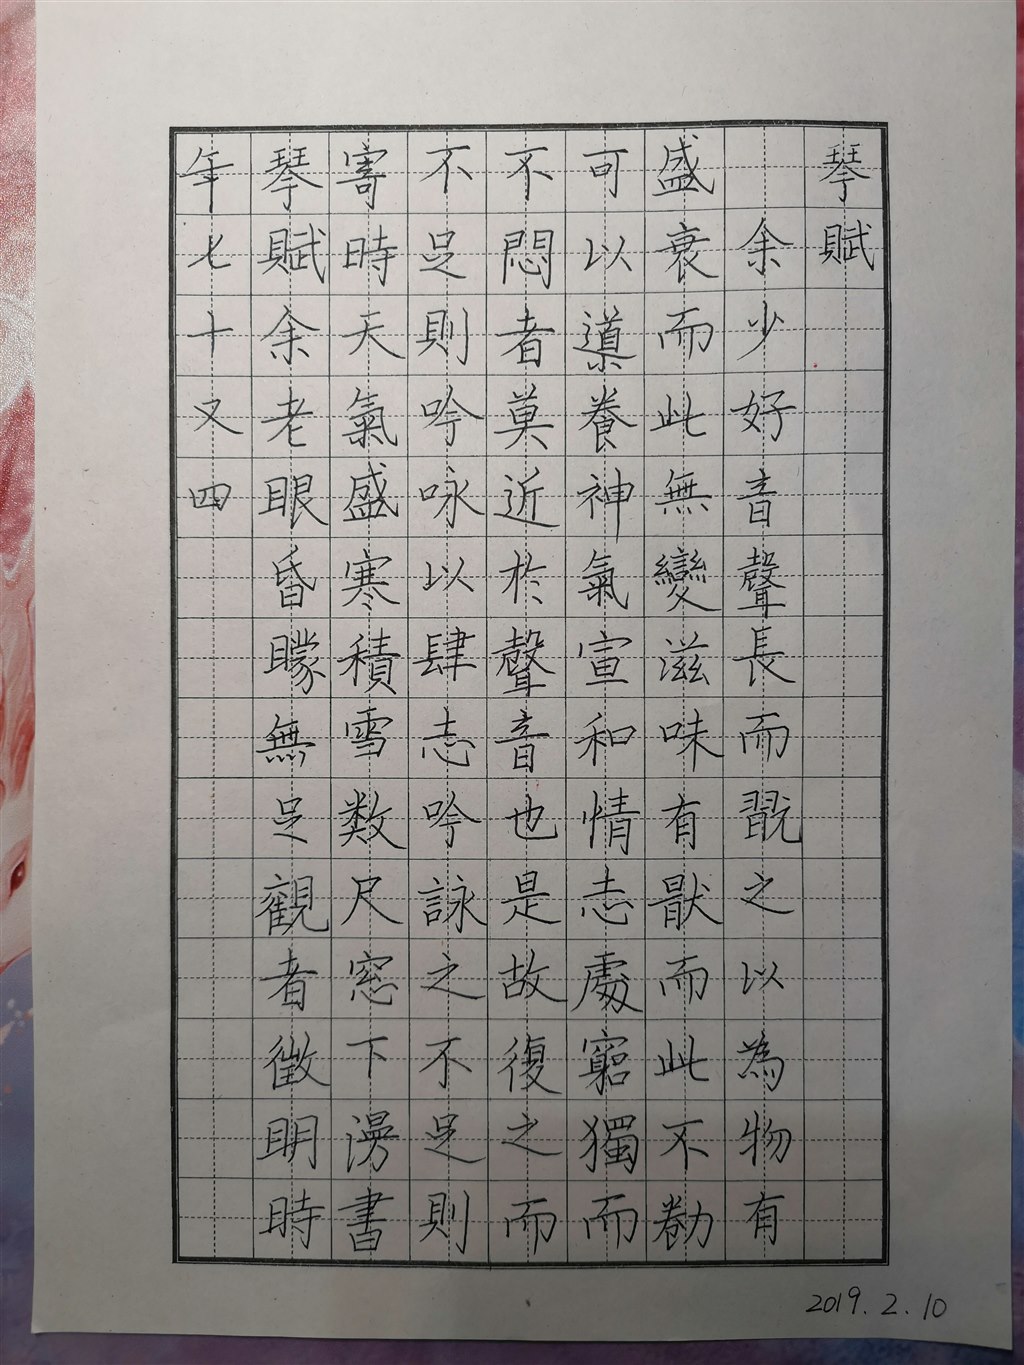 琴賦
余少好音聲長而翫之以為物有
盛衰而此無變滋味有猒而此不勌
可以導養神氣宣和情志處窮獨而
不悶者莫近於聲音也是故復之而
不足則吟咏以肆志吟詠之不足則
寄時天氣盛寒積雪数尺窓下漫書
琴賦余老眼昏矇無足觀者徵明時
年七十又四
2019.2.10